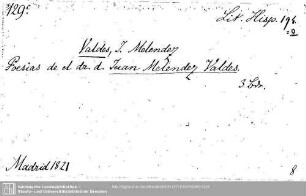 729.
Lit. Hisp. 198.
Valdes, J. Melendez
Poesias de el dr. d. Juan Melendez Valdes.
3 Bde.
Madrid 1821
8
Sächsische Landesbibliothek -
Staats- und Universitätsbibliothek Dresden